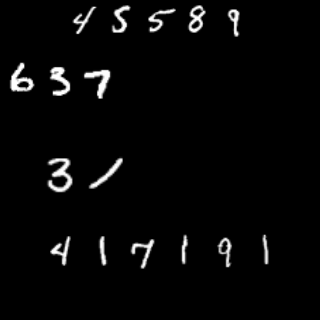 45589
637
31
417191